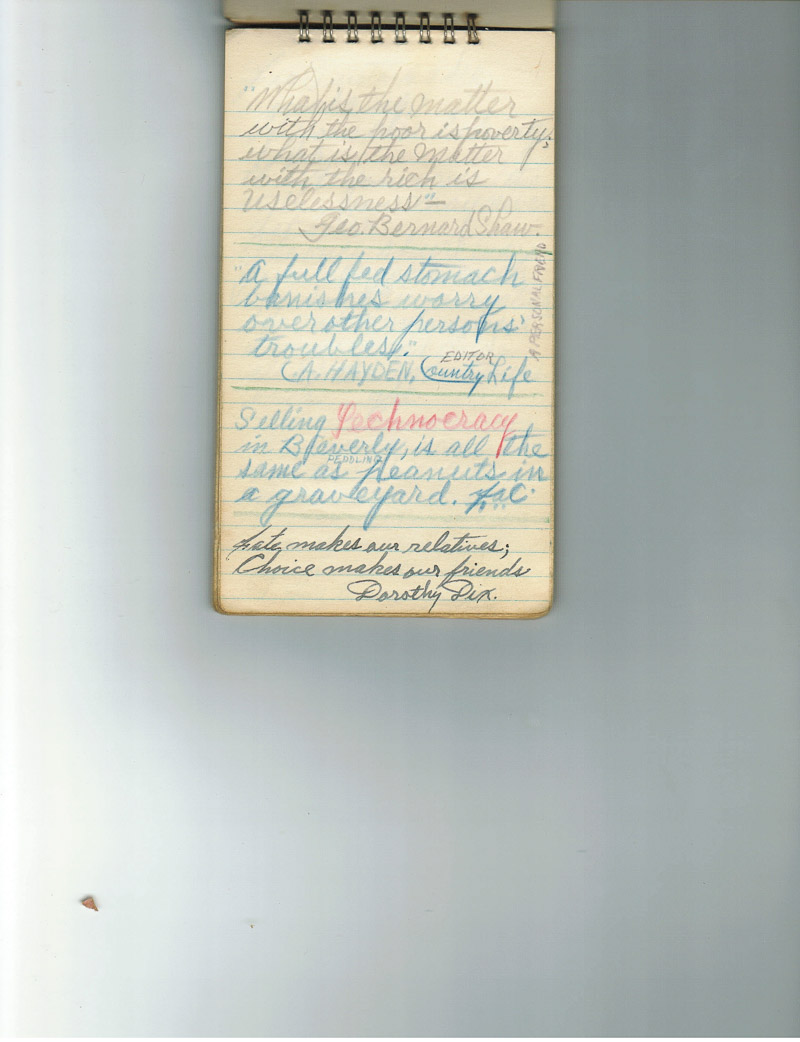 "What is the matter
with the poor is poverty;
what is the matter
with the rich is
Uselessness" —
Geo. Bernard Shaw.
"A full fed stomach
banishes worry
over other persons'
troubles."
A PERSONAL FRIEND
EDITOR
C.A. HAYDEN, Country Life
Selling Technocracy
in Beaverly, is all the
PEDDLING
same as Peanuts in
a graveyard.
Fate makes our relatives;
Choice makes our friends
Dorothy Dix.